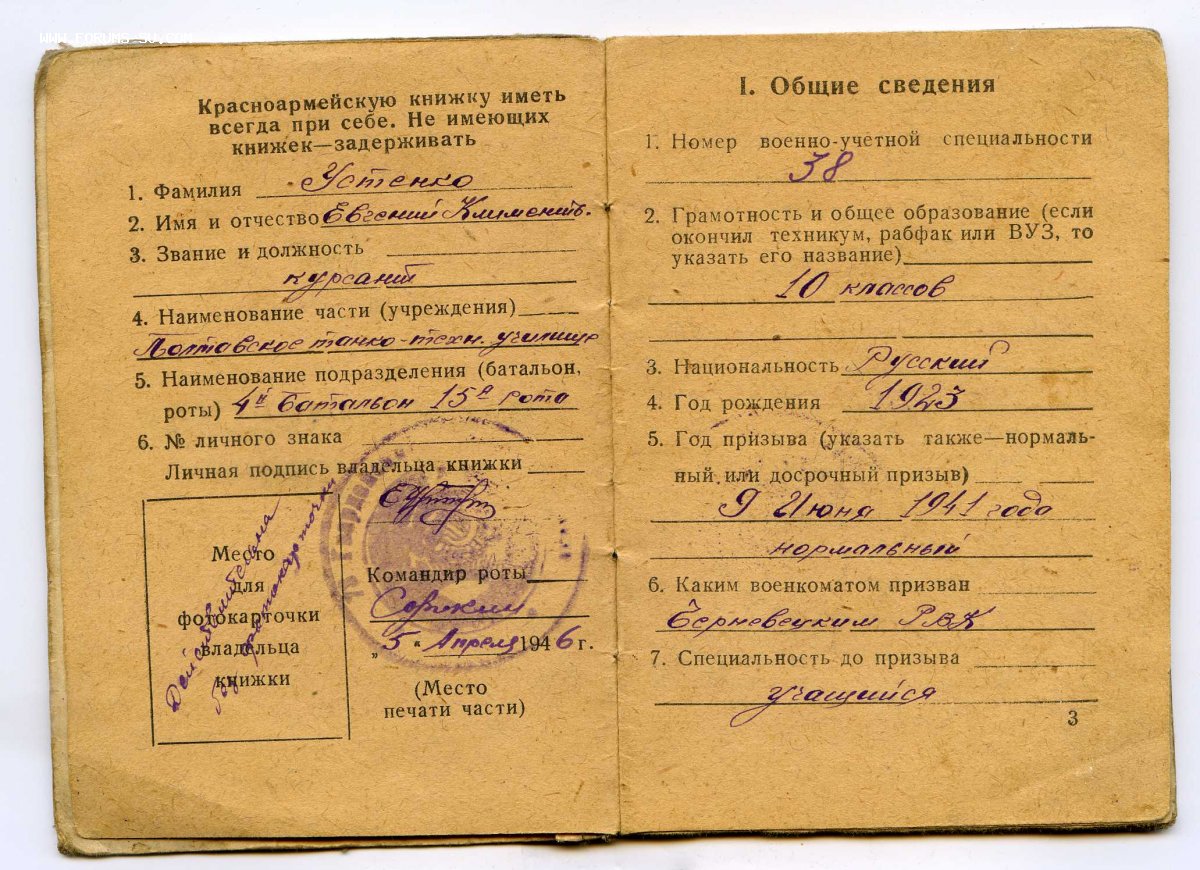 WWW.FORUMS-SU.COM
Красноармейскую книжку иметь
всегда при себе. Не имеющих
книжек—задерживать
1. Фамилия Устенко
2. Имя и отчество Евгений Климентьъ.
3. Звание и должность
курсант
4. Наименование части (учреждения)
Полтавское танко-техн. училище
5. Наименование подразделения (батальон,
роты) 4й батальон 15я рота
6. № личного знака
Личная подпись владельца книжки
Место
для
фотокарточки
владельца
книжки
Действительна
без фотокарточки
Командир роты
Сорокин
„5“ Апреля 1946 г.
(Место
печати части)
I. Общие сведения
1. Номер военно-учетной специальности
38
2. Грамотность и общее образование (если
окончил техникум, рабфак или ВУЗ, то
указать его название)
10 классов
3. Национальность Русский
4. Год рождения 1923
5. Год призыва (указать также—нормаль-
ный или досрочный призыв)
9 Июня 1941 года
нормальный
6. Каким военкоматом призван
РВК
7. Специальность до призыва
учащийся
3